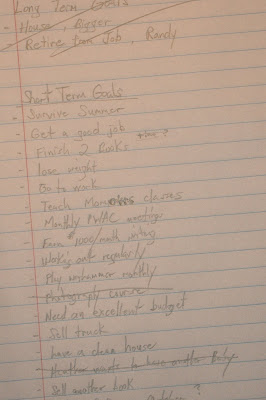 Long Term Goals
- House, Bigger
- Retire from Job, Randy
Short Term Goals
- Survive Summer
- Get a good job
- Finish 2 Books
- lose weight
- Go to work
- Teach Memoires classes
- Monthly PWAC meetings
- Earn $1000/month writing
- Working out regularly
- Play warhammer monthly
- Photography course
- Need an excellent budget
- Sell truck
- have a clean house
- Heather wants to have another Baby
- Sell another book
?